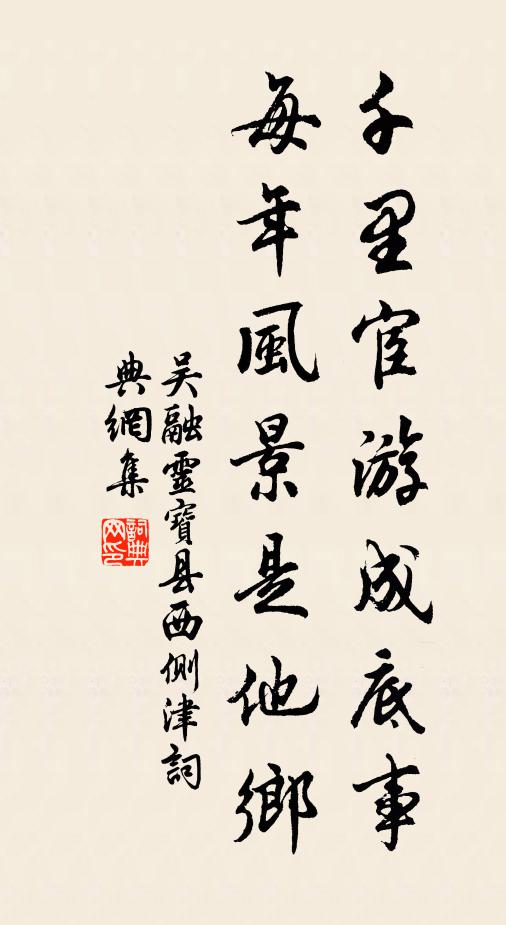 千里宦游成底事
每年風景是他鄉
吴融靈寶县西側津詞
典網集
詞典
网印